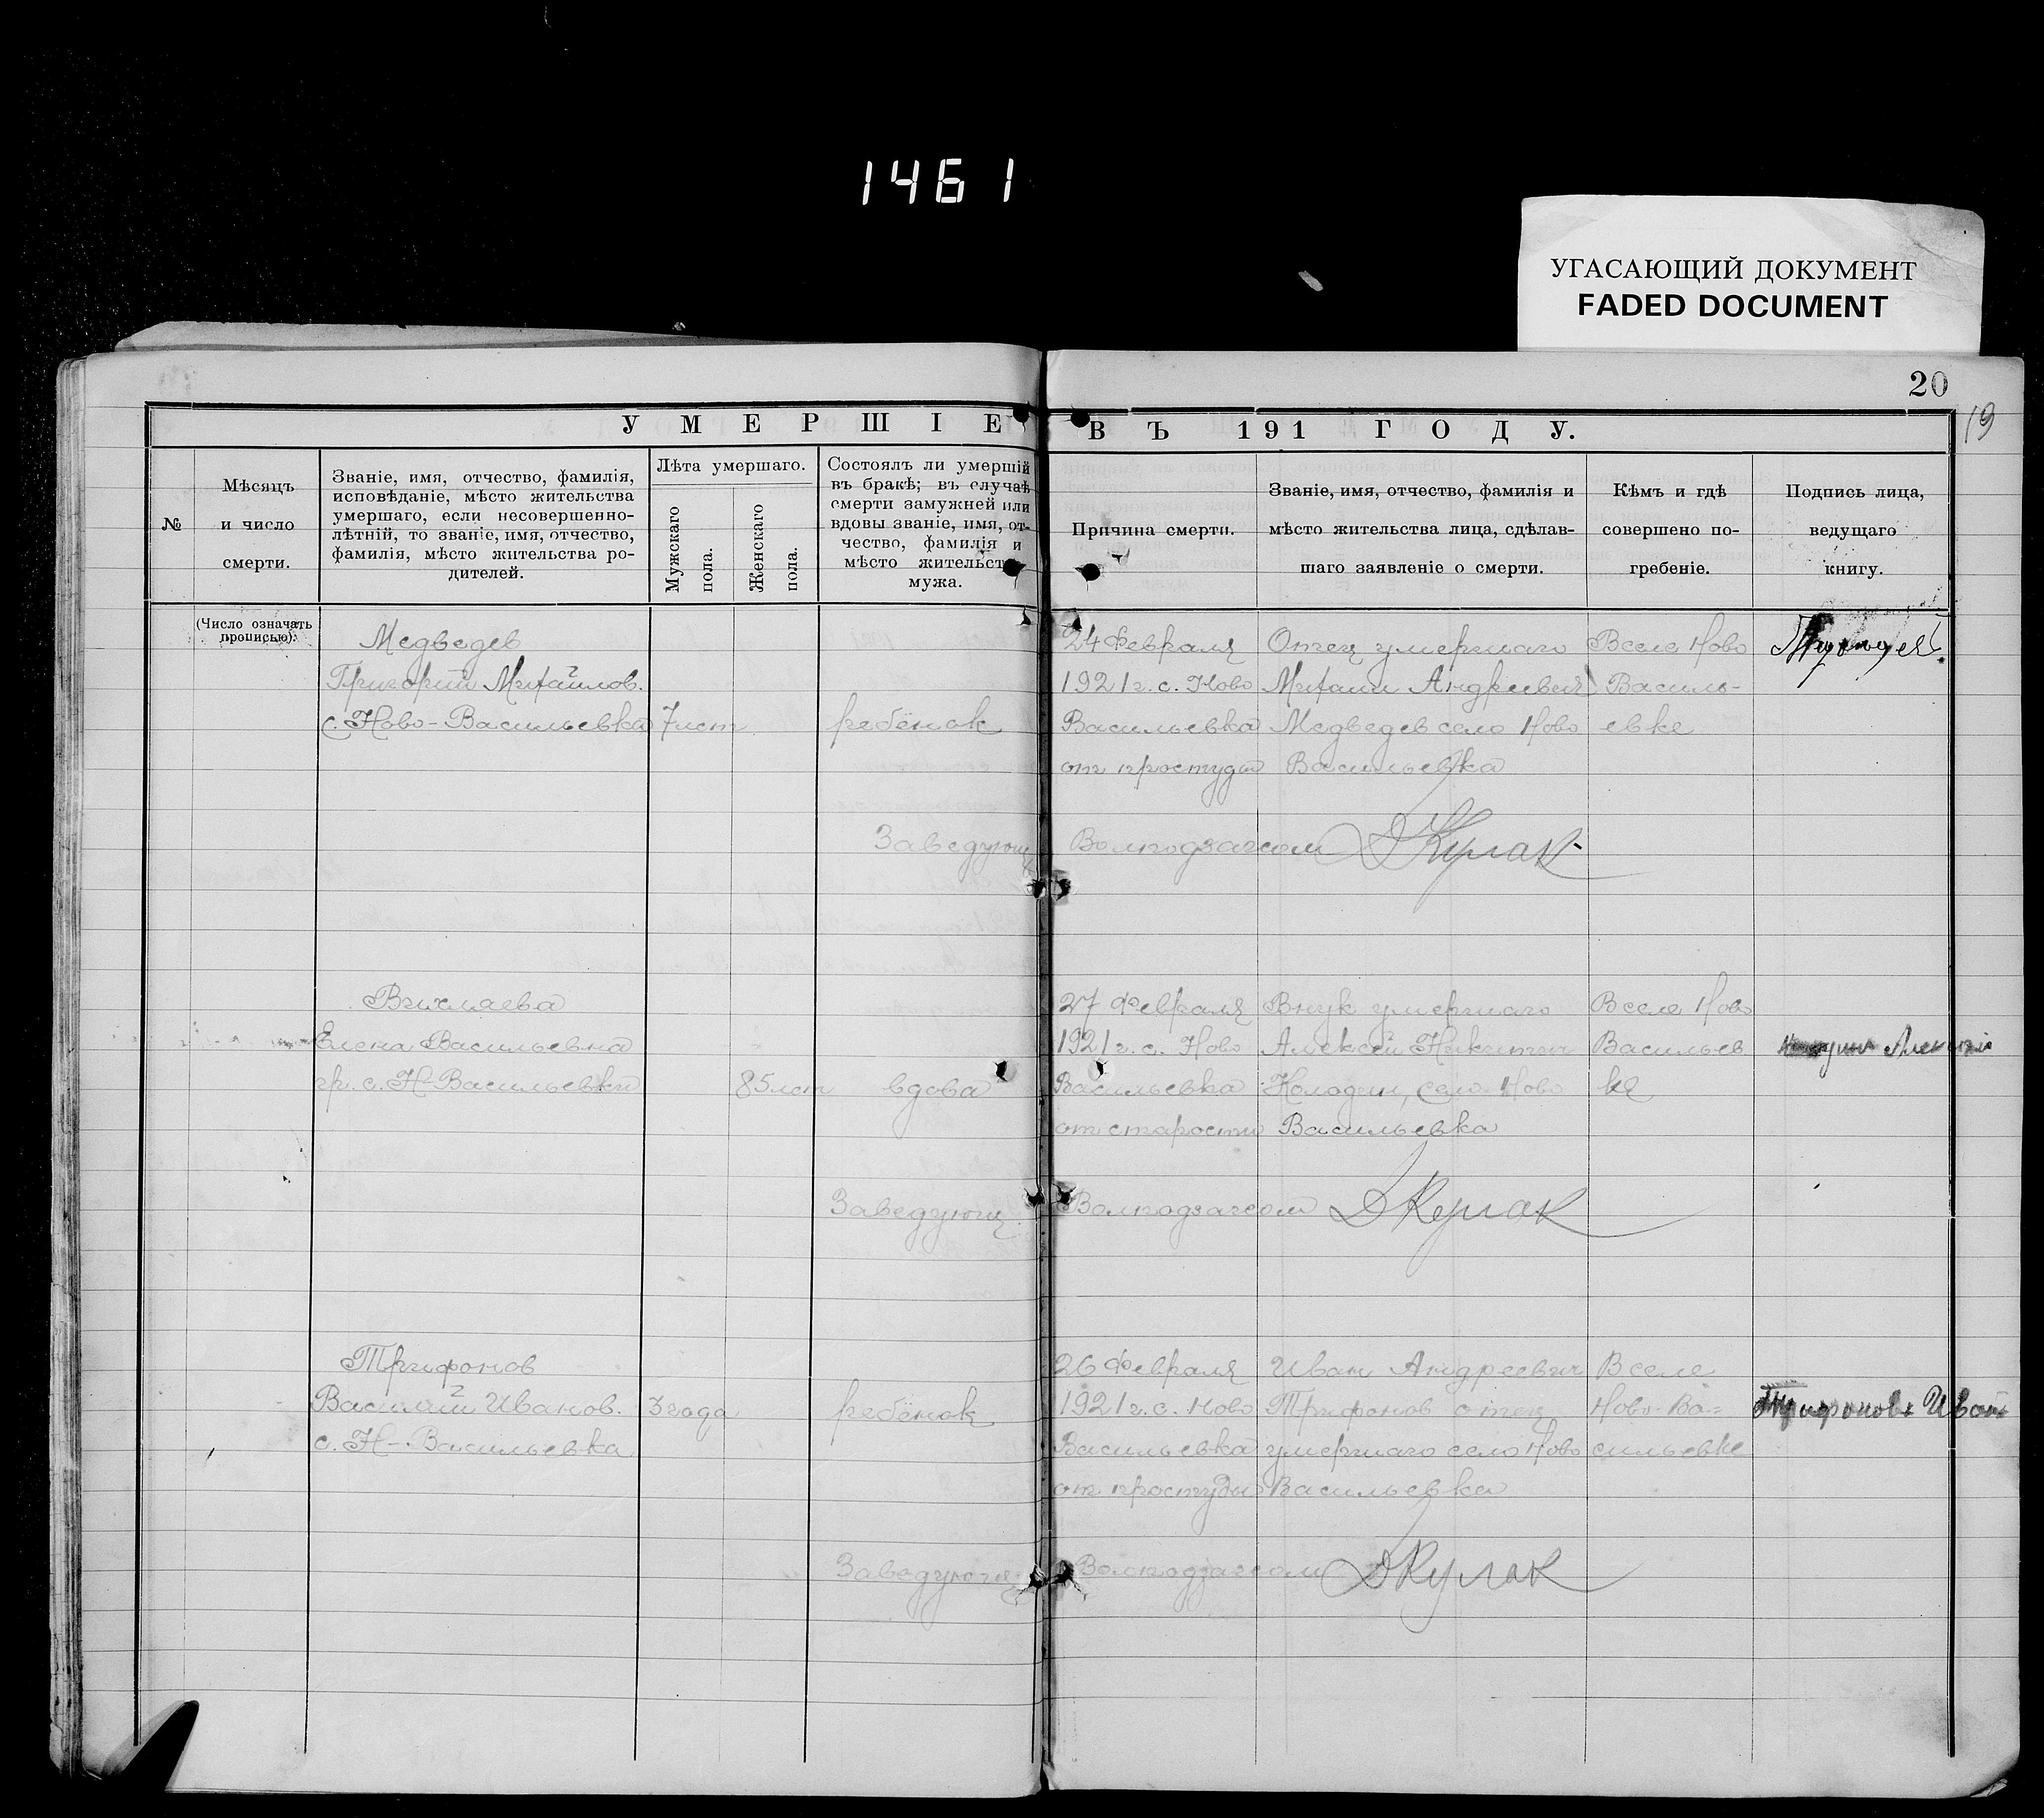 1461
УГАСАЮЩИЙ ДОКУМЕНТ
FADED DOCUMENT
20
19
УМЕРШІЕ ВЪ 191 ГОДУ.
№
Мѣсяцъ
и число
смерти.
Званіе, имя, отчество, фамилія,
исповѣданіе, мѣсто жительства
умершаго, если несовершенно-
лѣтній, то званіе, имя, отчество,
фамилія, мѣсто жительства ро-
дителей.
Лѣта умершаго.
Мужскаго
пола.
Женскаго
пола.
Состоялъ ли умершій
въ бракѣ; въ случаѣ
смерти замужней или
вдовы званіе, имя, от-
чество, фамилія и
мѣсто жительст
мужа.
Причина смерти.
Званіе, имя, отчество, фамилія и
мѣсто жительства лица, сдѣлав-
шаго заявленіе о смерти.
Кѣмъ и гдѣ
совершено по-
гребеніе.
Подпись лица,
ведущаго
книгу.
(Число означать
прописью).
Медведев
Григорий Михайлов.
с. Ново-Васильевка
7 лет
ребёнок
24 Февраля
1921 г. с. Ново
Васильевка
от простуды
Отец умершаго
Михаил Андреевич
Медведев село Ново
Васильевка
В селе Ново
Василь-
евке
Заведующ Волподзагсом ДКулак
Вихляева
Елена Васильевна
гр. с. Н-Васильевки
85 лет
вдова
27 Февраля
1921 г. с. Ново
Васильевка
от старости
Внук умершаго
Алексей Никитич
Колодин, село Ново
Васильевка
В селе Ново
Васильев
ке
Алексей
Заведующ Волподзагсом ДКулак
Трифонов
Василий Иванов.
с. Н-Васильевка
3 года
ребёнок
26 Февраля
1921 г. с. Ново
Васильевка
от простуды
Иван Андреевич
Трифонов отец
умершаго село Ново
Васильевка
В селе
Ново-Ва=
сильевке
Трифоновъ Иван
Заведующ Волподзагсом ДКулак